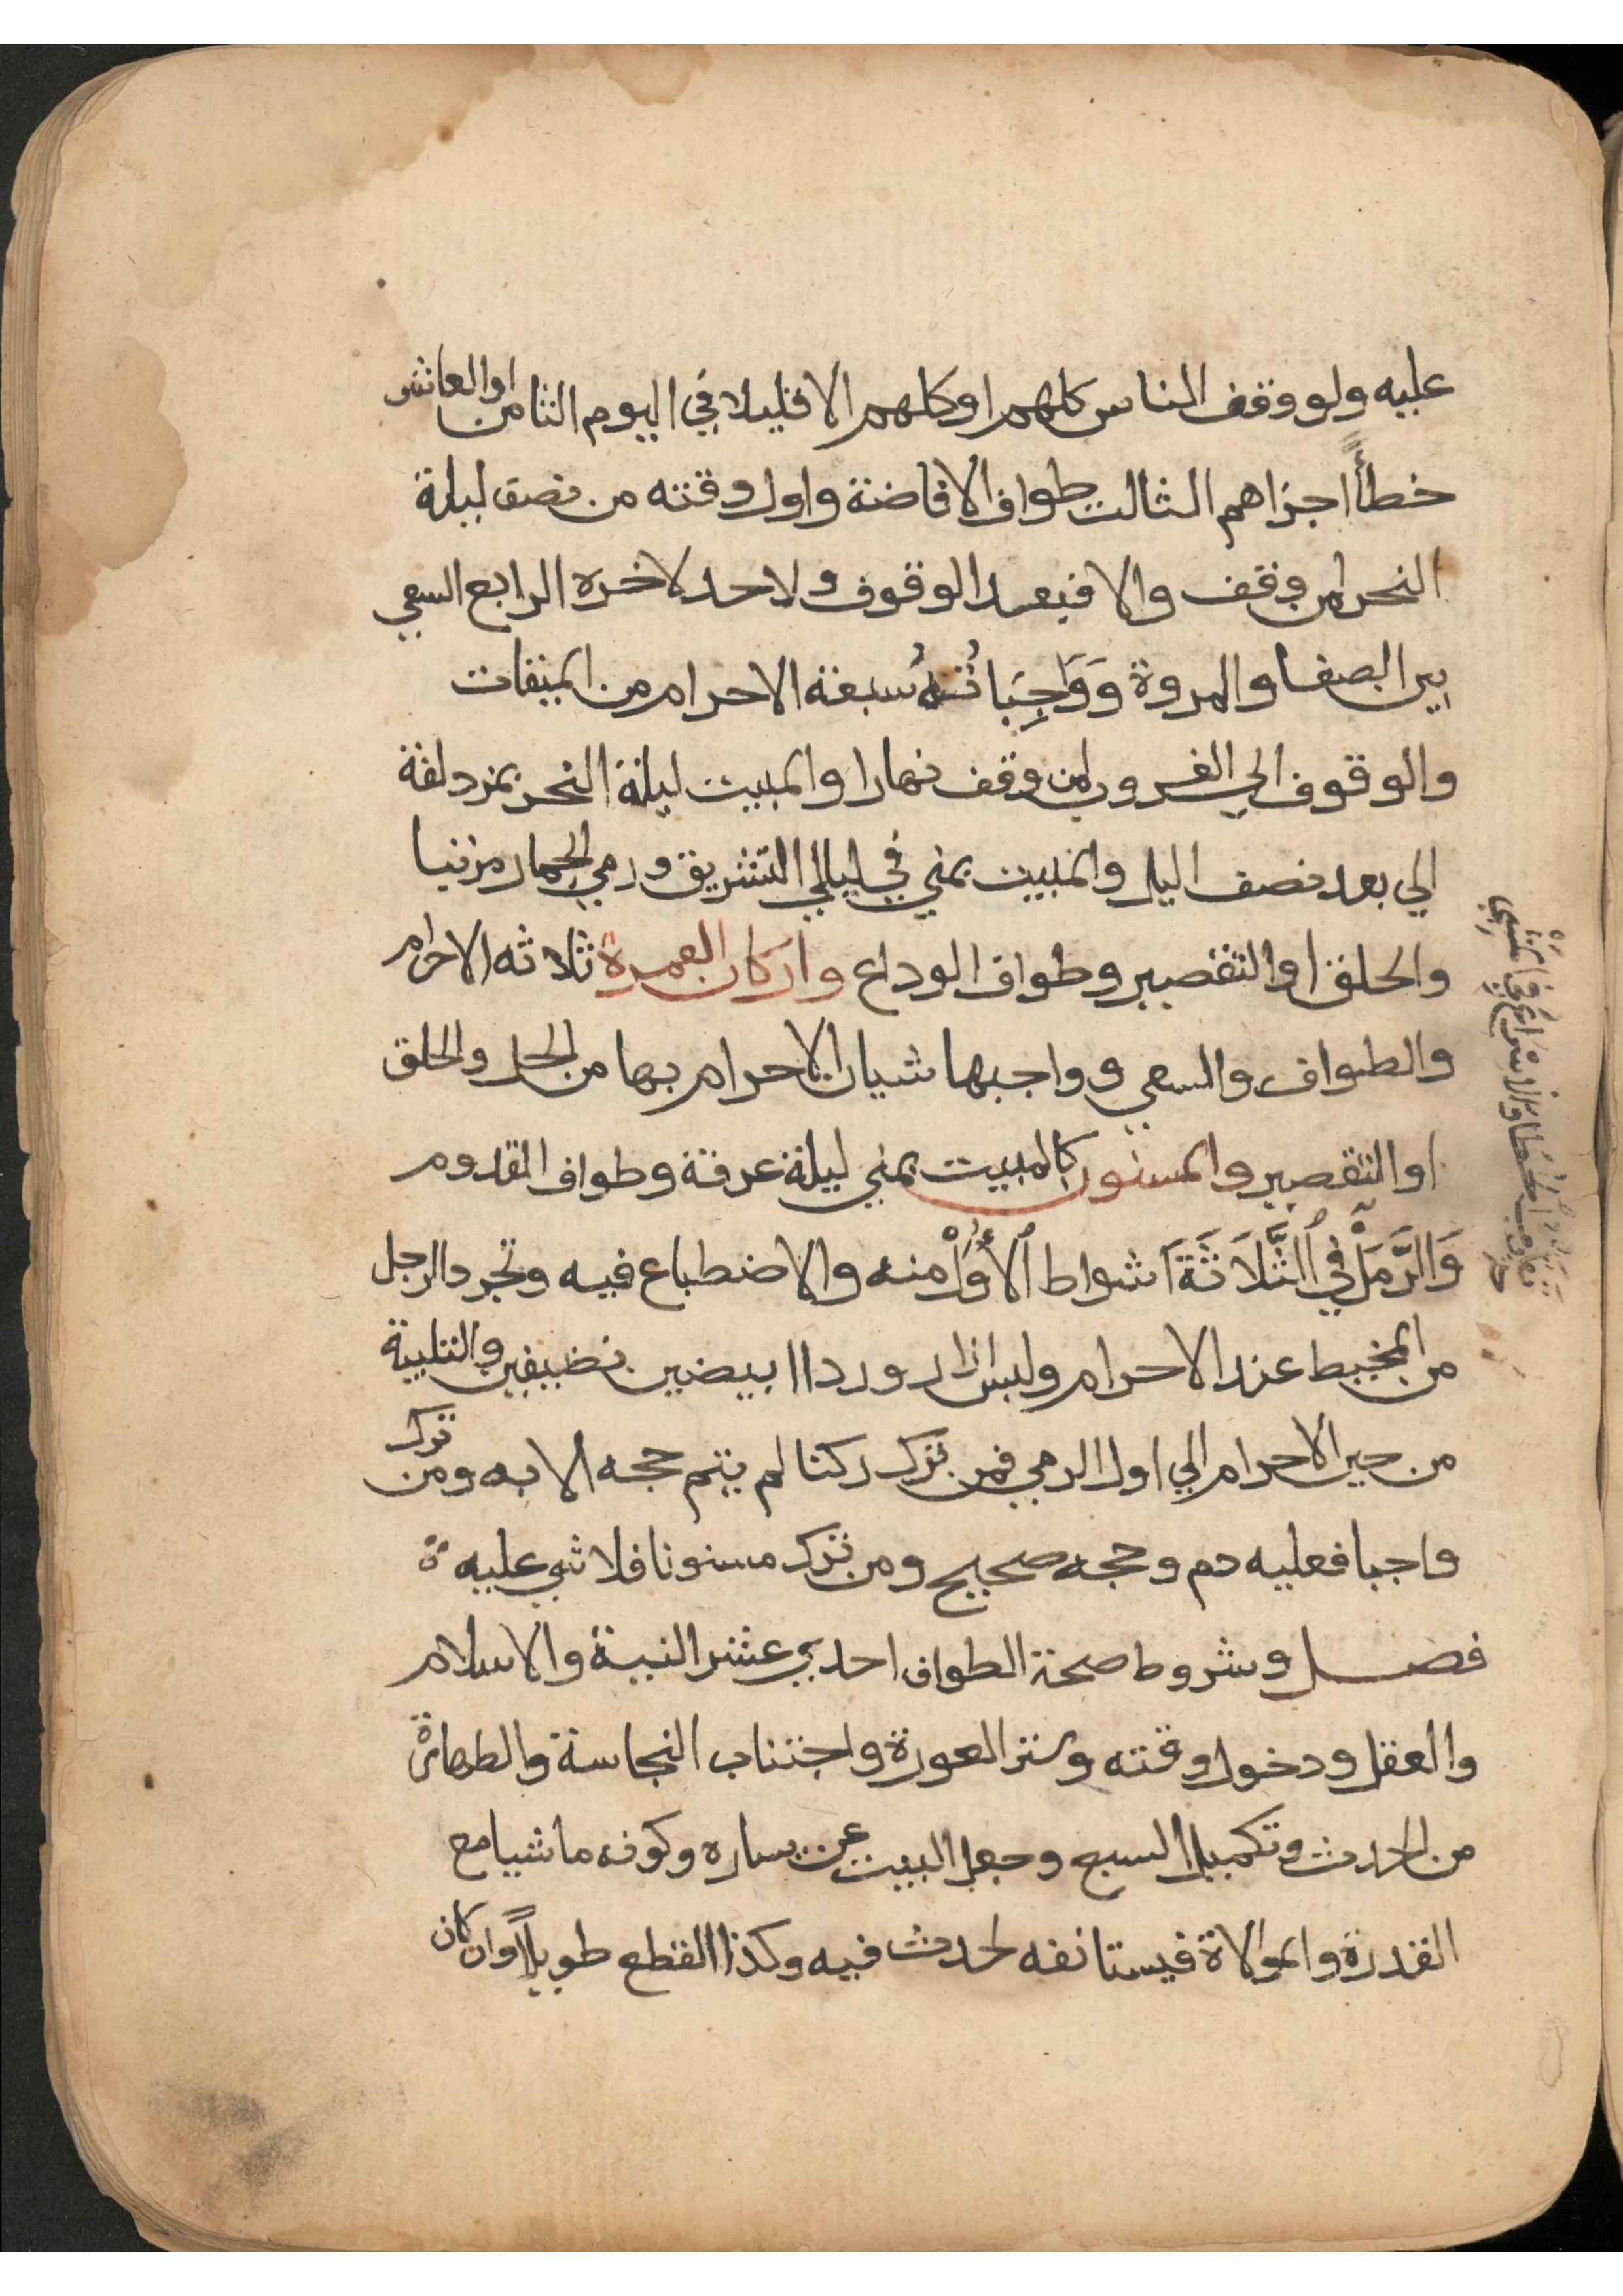 عليه ولو وقف الناس كلهم او كلهم الا قليلا في اليوم الثامن اوالعاشر
خطأً اجزاهم الثالث طواف الافاضة واول وقته من نصف ليلة
النحر لمن وقف والا فبعد الوقوف ولا حد لاخره الرابع السعي
بين الصفا والمروة وَوَاجِبَاتُهُ سبعة الاحرام من الميقات
والوقوف الي الغروب لمن وقف نهارا والمبيت ليلة النحر بمزدلفة
الي بعد نصف اليل والمبيت بمني في ليالي التشريق ورمي الجمار مرتبا
والحلق او التقصير وطواف الوداع واركان العمرة ثلاثه الاحرام
والطواف والسعي وواجبها شيان الاحرام بها من الحل والحلق
او التقصير والمسنون كالمبيت بمني ليلة عرفة وطواف القدوم
وَالرَّمَلْ في الثَّلَاثَةَ اشواط الأُوَلْ منه والاضطباع فيه وتجرد الرجل
من المخيط عند الاحرام ولبس ازار وردا ابيضين نضيفين والتلبية
من حين الاحرام الي اول الرمي فمن ترك ركنا لم يتم حجه الا به ومن ترك
واجبا فعليه دم وحجه صحيح ومن ترك مسنونا فلا شي عليه ة
فصل وشروط صحة الطواف احدي عشر النية والاسلام
والعقل ودخول وقته وستر العورة واجتناب النجاسة والطهارة
من الحدث وتكميل السبع وجعل البيت عن يساره وكونه ماشيا مع
القدرة والموالاة فيستانفه لحدث فيه وكذا القطع طويلاً وان كان